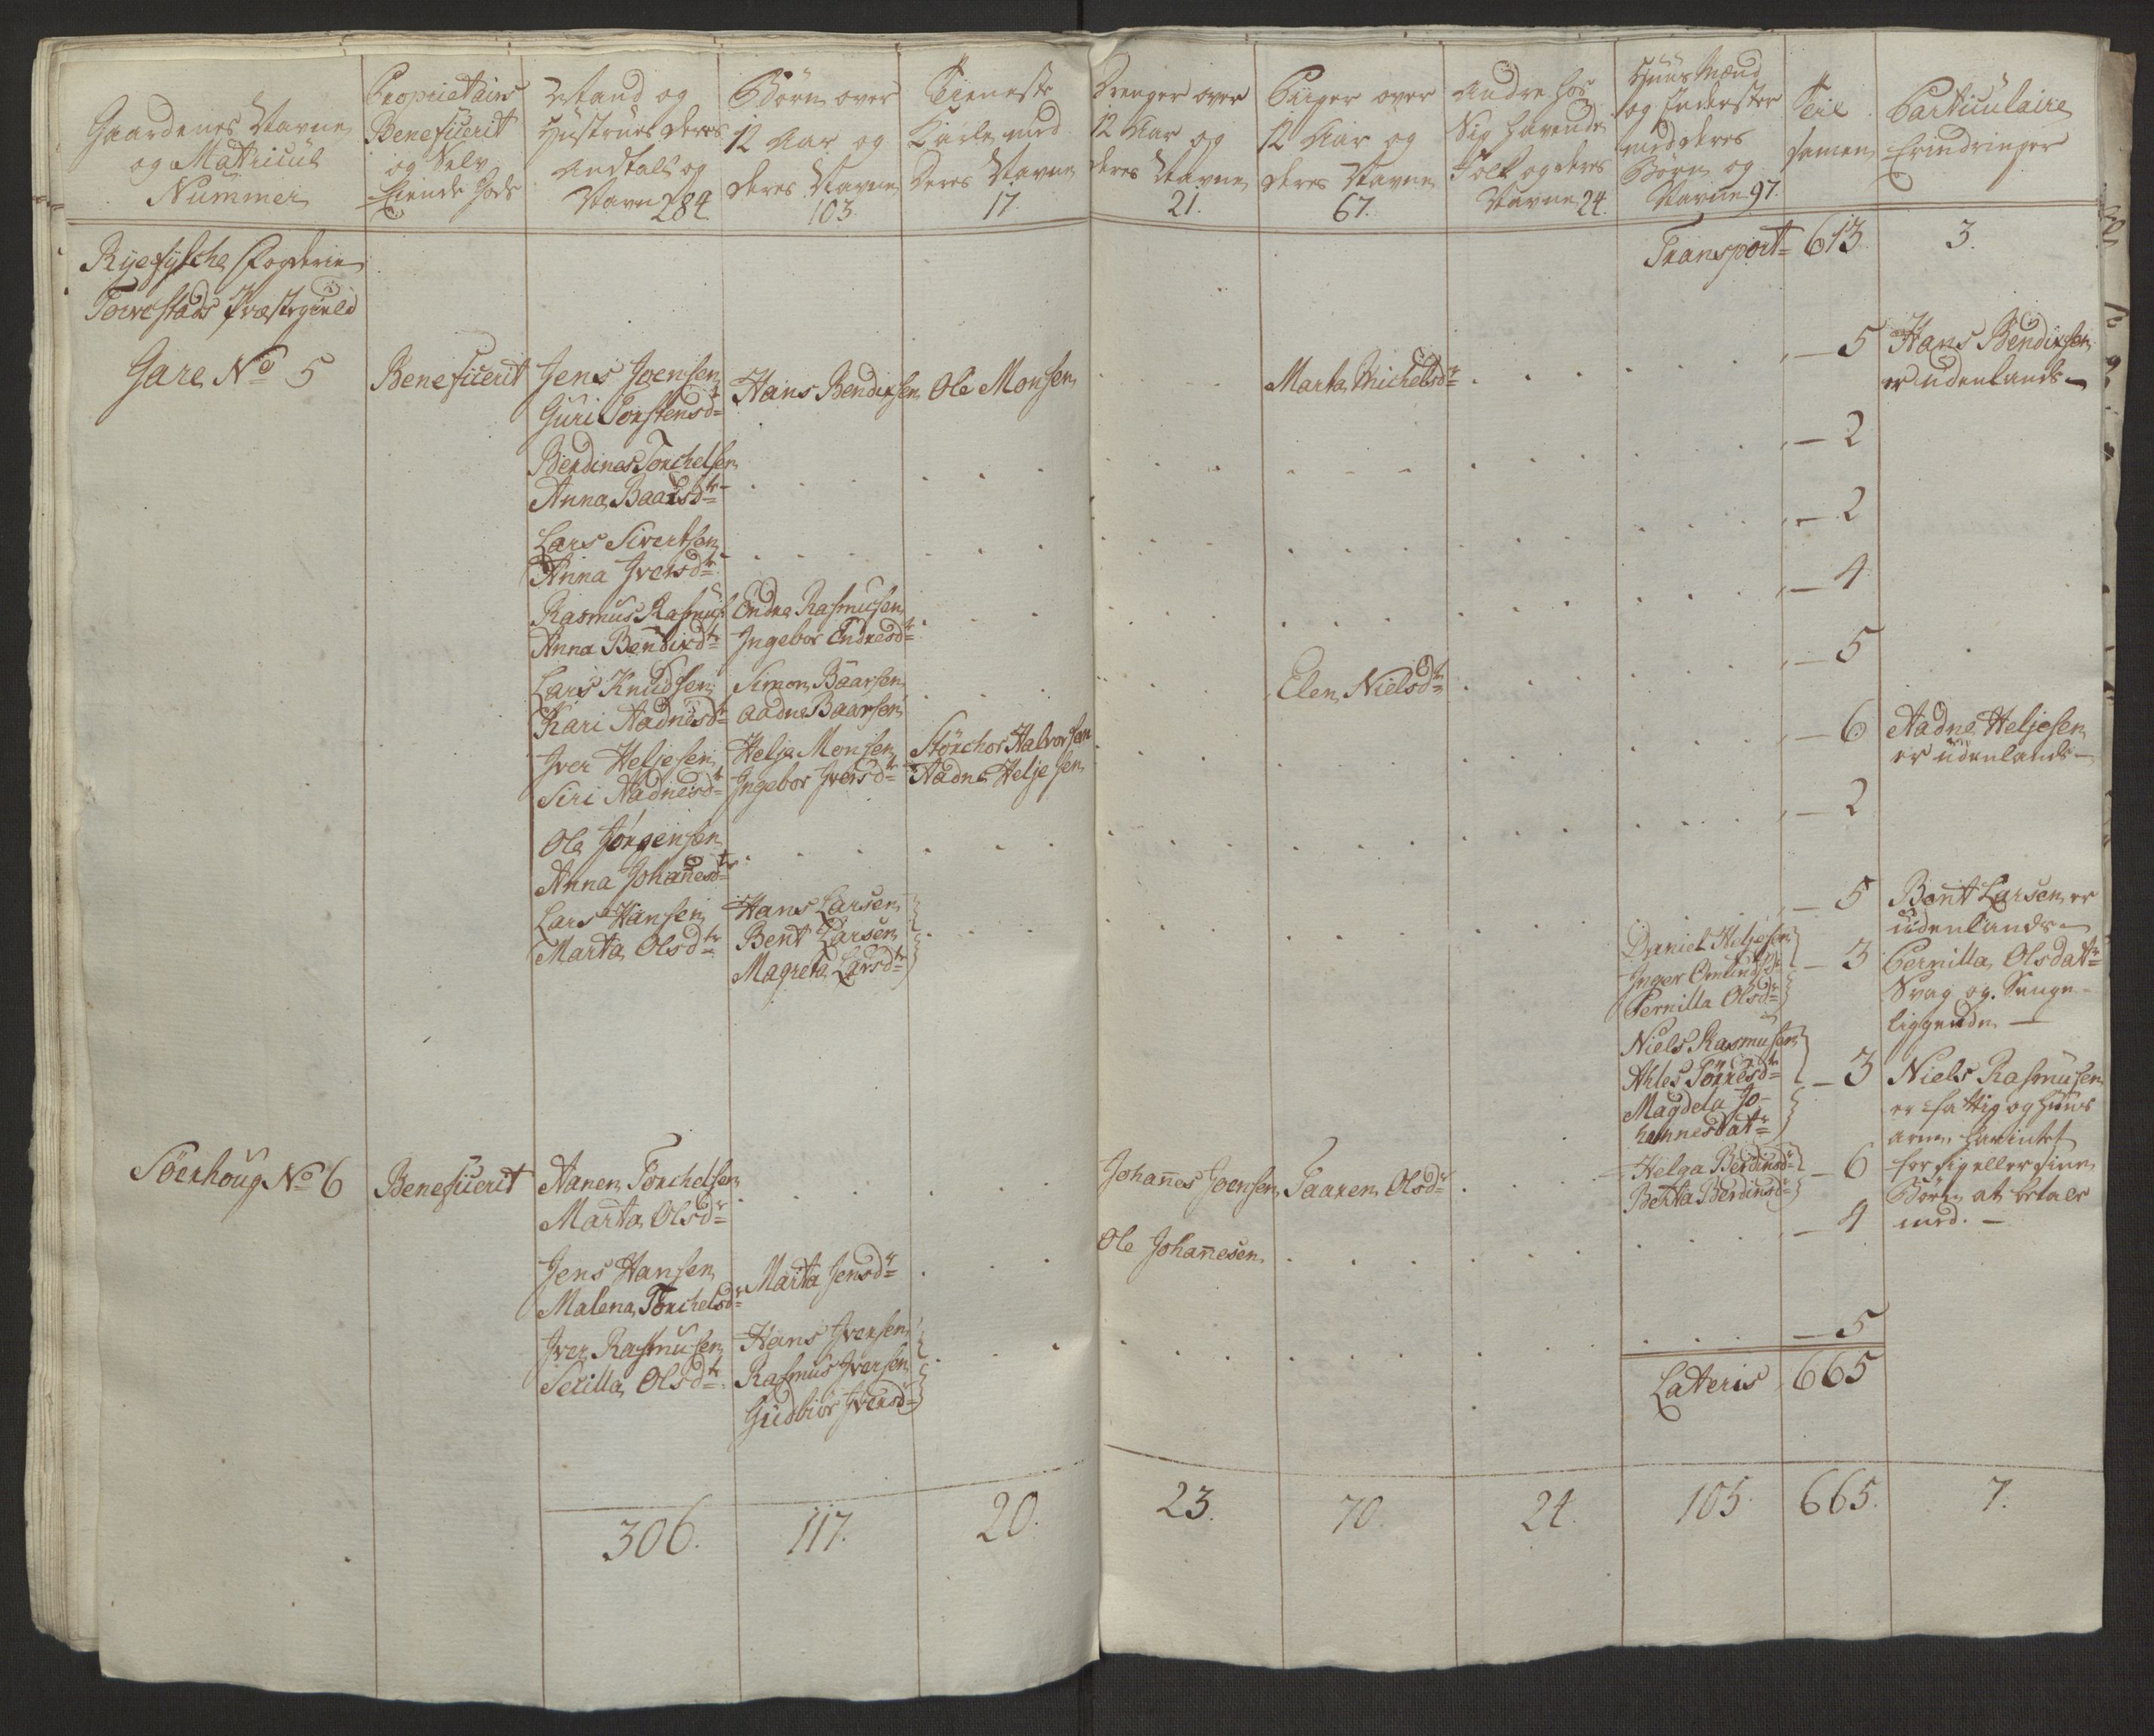 Gaardenes Navne
og Matricul
Nummer
Proprietairs
Beneficerit
og Selv
Eiende Gods
Mand og
Hustrues deres
Andtall og
Navn 284
Børn over
12 Aar og
deres Navne
103.
Tieneste
Karle med
Deres Navne
17.
Drenger over
12 Aar og
deres Navne
21.
Piiger over
12 Aar og
deres Navne
67.
Andre hos
Sig havende
Folk og deres
Navne 24.
Huus Mænd
og Inderster
med deres
Børn og
Navne 97.
Teil
samen
Particulaire
Erindringer
Ryefylche Fogderie
Torvestads Præstegield
Transport = 613. 3.
Gare No 5
Beneficerit
Jens Joensen
Guri Torstensdr
Hans Bendixsen
Ole Monsen
Marta Michelsdr
5
Hans Bendixsen
er udenlands
Berdines Torchelsen
Anna Baarsdtr
2
Lars Sivertsen
Anna Iversdtr
2
Rasmus Rasmus
Anna Bendixdtr
Endre Rasmusen
Ingebor Endresdtr
4
Lars Knudsen
Kari Aadnesdtr
Simon Baarsen
Aadne Baarsen
Elen Nielsdtr
5
Iver Heljesen
Siri Aadnesdtr
Helje Monsen
Ingebor Iversdtr
Störchor Halvorsen
Aadne Heljesen
6
Aadne Heljesen
er udenlands
Ole Jörgensen
Anna Johanesdtr
2
Lars Hansen
Marta Olsdtr
Hans Larsen
Bent Larsen
Magreta Larsdtr
5
Bent Larsen er
udenlands
Daniel Heljesen
Inger
Pernilla Olsdr
3
Pernilla Olsdatr
Svag og Senge
liggende
Niels Rasmusen
Ahles Torresdtr
Magdela Jo-
hannesdatr
3
Niels Rasmusen
er fattig og huus
arm har intet
for sig eller sine
Börn at betale
med.
Helga Berdinsdr
Berta Berdinsdr
Söerhoug No 6
Beneficerit
Aanen Torchelsen
Marta Olsdr
Johañes Joensen
Taaren Olsdr
6
Jens Hansen
Malena Torchelsdr
Marta Jensdr
Ole Johañesen
4
Iver Rasmusen
Secilla Olsdtr
Hans Iversen
Rasmus Iversen
Gudbior Iversdr
5
Lateris 665
306. 117. 20. 23. 70. 24. 105. 665. 7.